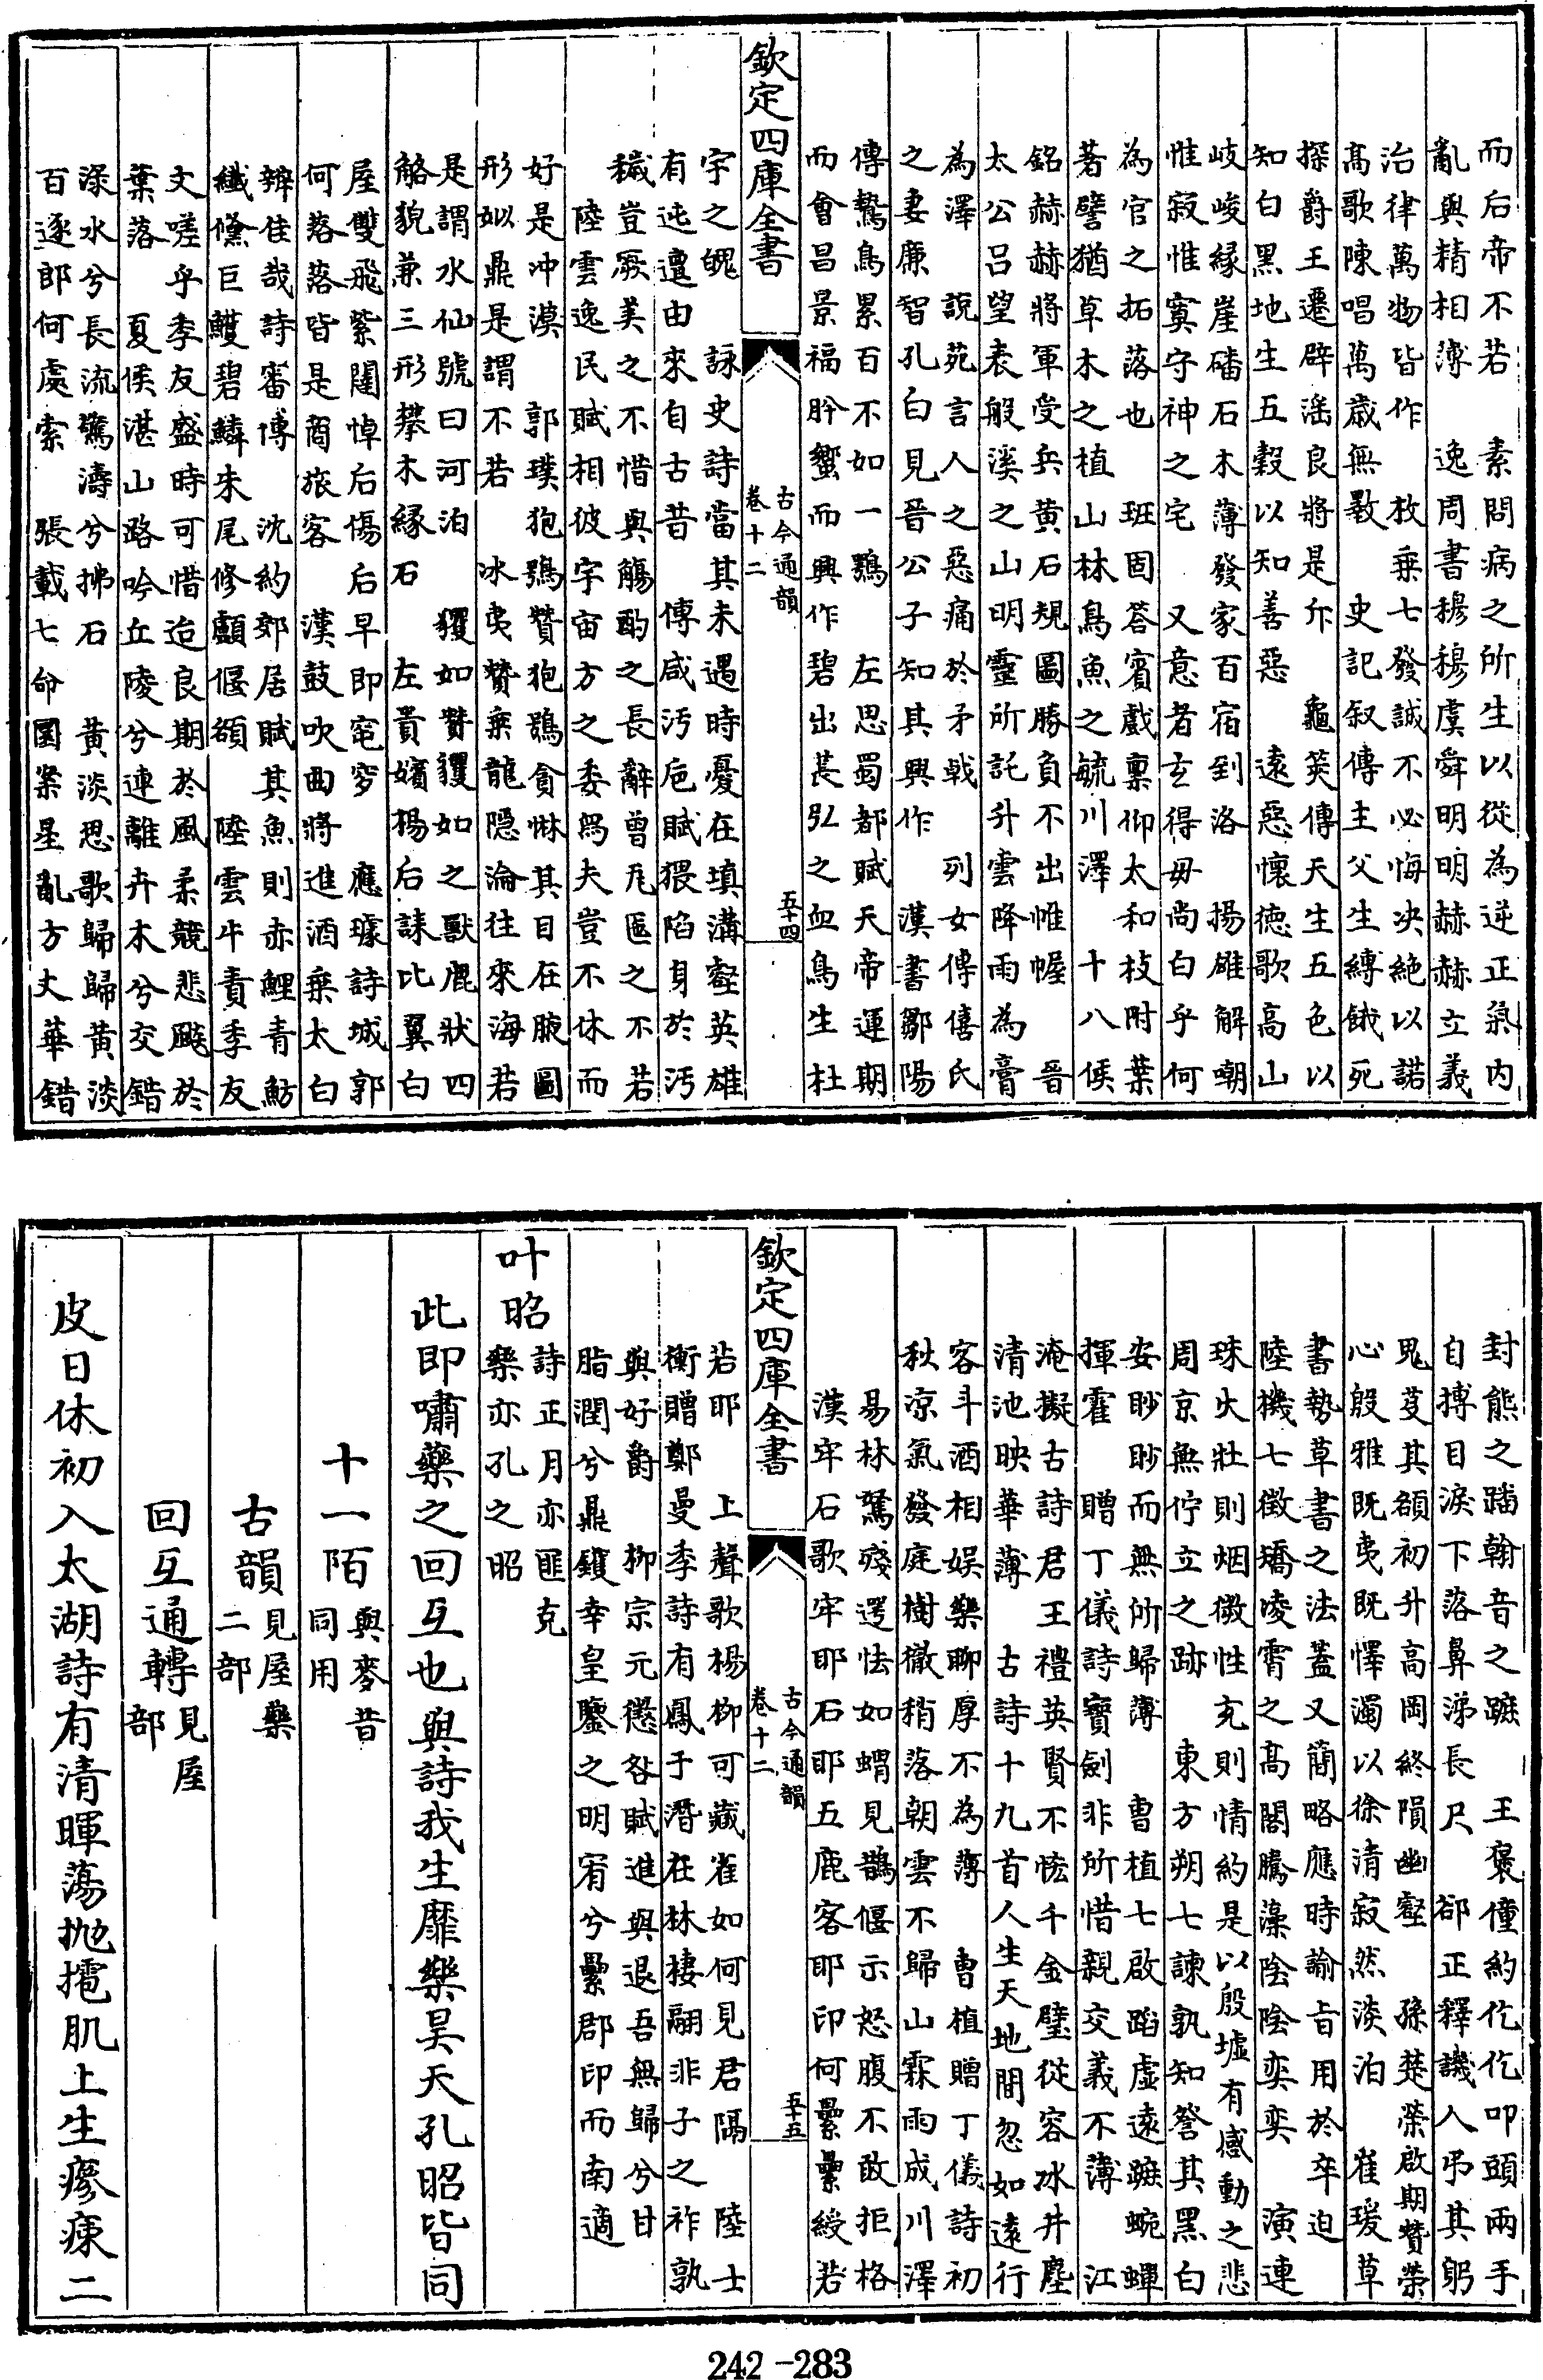 而后帝不若　素問病之所生以從為逆正氣内
亂與精相薄　逸周書穆穆虞舜明明赫赫立義
治律萬物皆作　枚乗七發誠不必悔决絶以諾
髙歌陳唱萬嵗無斁　史記叙傳主父生縛餓死
探爵王遷辟滛良將是斥　龜筴傳天生五色以
知白黒地生五榖以知善惡　逺惡懷徳歌高山
岐峻縁崖磻石木薄發家百宿到洛　揚雄解嘲
惟寂惟寞守神之宅　又意者玄得毋尚白乎何
為官之拓落也　班固答賓戲禀仰太和枝附葉
著譬猶草木之植山林鳥魚之毓川澤　十八侯
銘赫赫將軍受兵黄石規圖勝負不出惟幄　晉
太公吕望表般溪之山明靈所託升雲降雨為膏
為澤　說苑言人之惡痛於矛戟　列女傳僖氏
之妻㢘智孔白見晉公子知其興作　漢書鄒陽
傳鷙鳥累百不如一鶚　左思蜀都賦天帝運期
而會昌景福肹蠁而興作碧出萇弘之血鳥生杜
欽定四庫全書
古今通韻
卷十二
五十四
宇之魄　詠史詩當其未遇時憂在填溝壑英雄
有迍邅由來自古昔　傳咸汚巵賦猥陷身於汚
穢豈厥美之不惜與觴酌之長辭曾瓦匜之不若
陸雲逸民賦相彼宇宙方之委舄夫豈不休而
好是冲漠　郭璞狍鴞贊狍鴞貪惏其目在腋圖
形如鼎是謂不若　冰夷贊乗龍隐淪往來海若
是謂水仙號曰河泊　玃如贊玃如之獸鹿狀四
觡貌兼三形攀木縁石　左貴嬪楊后誄比翼白
屋雙飛紫閣悼后傷后早即窀穸　應璩詩城郭
何落落皆是商旅客　漢鼓吹曲將進酒乗太白
辨佳哉詩審傳　沈約郊居賦其魚則赤鯉青魴
纎儵巨鱯碧鱗朱尾修顱偃額　陸雲牛責季友
文嗟乎季友盛時可惜迨良期於風柔競悲飈於
葉落　夏侯湛山路吟丘陵兮連離卉木兮交錯
渌水兮長流驚濤兮拂石　黄淡思歌歸歸黄淡
百逐郎何處索　張載七命圉案星亂方丈華錯
封熊之蹯翰音之蹠　王褒僮約仡仡叩頭兩手
自搏目淚下落鼻涕長尺　郤正釋譏入弔其躬
鬼芟其額初升高岡終隕幽壑　孫楚榮啟期贊榮
心殷雅既夷既懌濁以徐清寂然淡泊　崔瑗草
書勢草書之法蓋又簡略應時諭旨用於卒迫
陸機七徴矯凌霄之髙閣騰藻陰陰奕奕　演連
珠火壯則烟微性充則情約是以殷墟有感動之悲
周京無佇立之跡　東方朔七諫孰知詧其黑白
安眇眇而無所歸薄　曹植七啟蹈虚逺蹠蜿蟬
揮霍　贈丁儀詩寶劍非所惜親交義不薄　江
淹擬古詩君王禮英賢不悋千金璧從容冰井䑓
清池映華薄　古詩十九首人生天地間忽如遠行
客斗酒相娛樂聊厚不為薄　曹植贈丁儀詩初
秋涼氣發庭樹徹稍落朝雲不歸山霖雨成川澤
易林駑殘遻怯如蝟見鵲偃示怒腹不敢拒格
漢牢石歌牢耶石耶五鹿客耶印何纍纍綬若
欽定四庫全書
古今通韻
卷十二
五十五
若耶　上聲歌楊柳可藏雀如何見君隔　陸士
衡贈鄭曼季詩有鳳于潛在林棲翮非子之祚孰
與好爵　柳宗元懲咎賦進與退吾無歸兮甘
脂潤兮鼎鑊幸皇鑒之明宥兮纍郡印而南適
叶昭　詩正月亦匪克
樂亦孔之昭
此即嘯藥之回互也與詩我生靡樂昊天孔昭皆同
十一陌　與麥昔
同用
古韻　見屋藥
二部
回互通轉　見屋
部
皮日休初入太湖詩有清暉蕩抛掩肌上生瘮㾕二
242-283